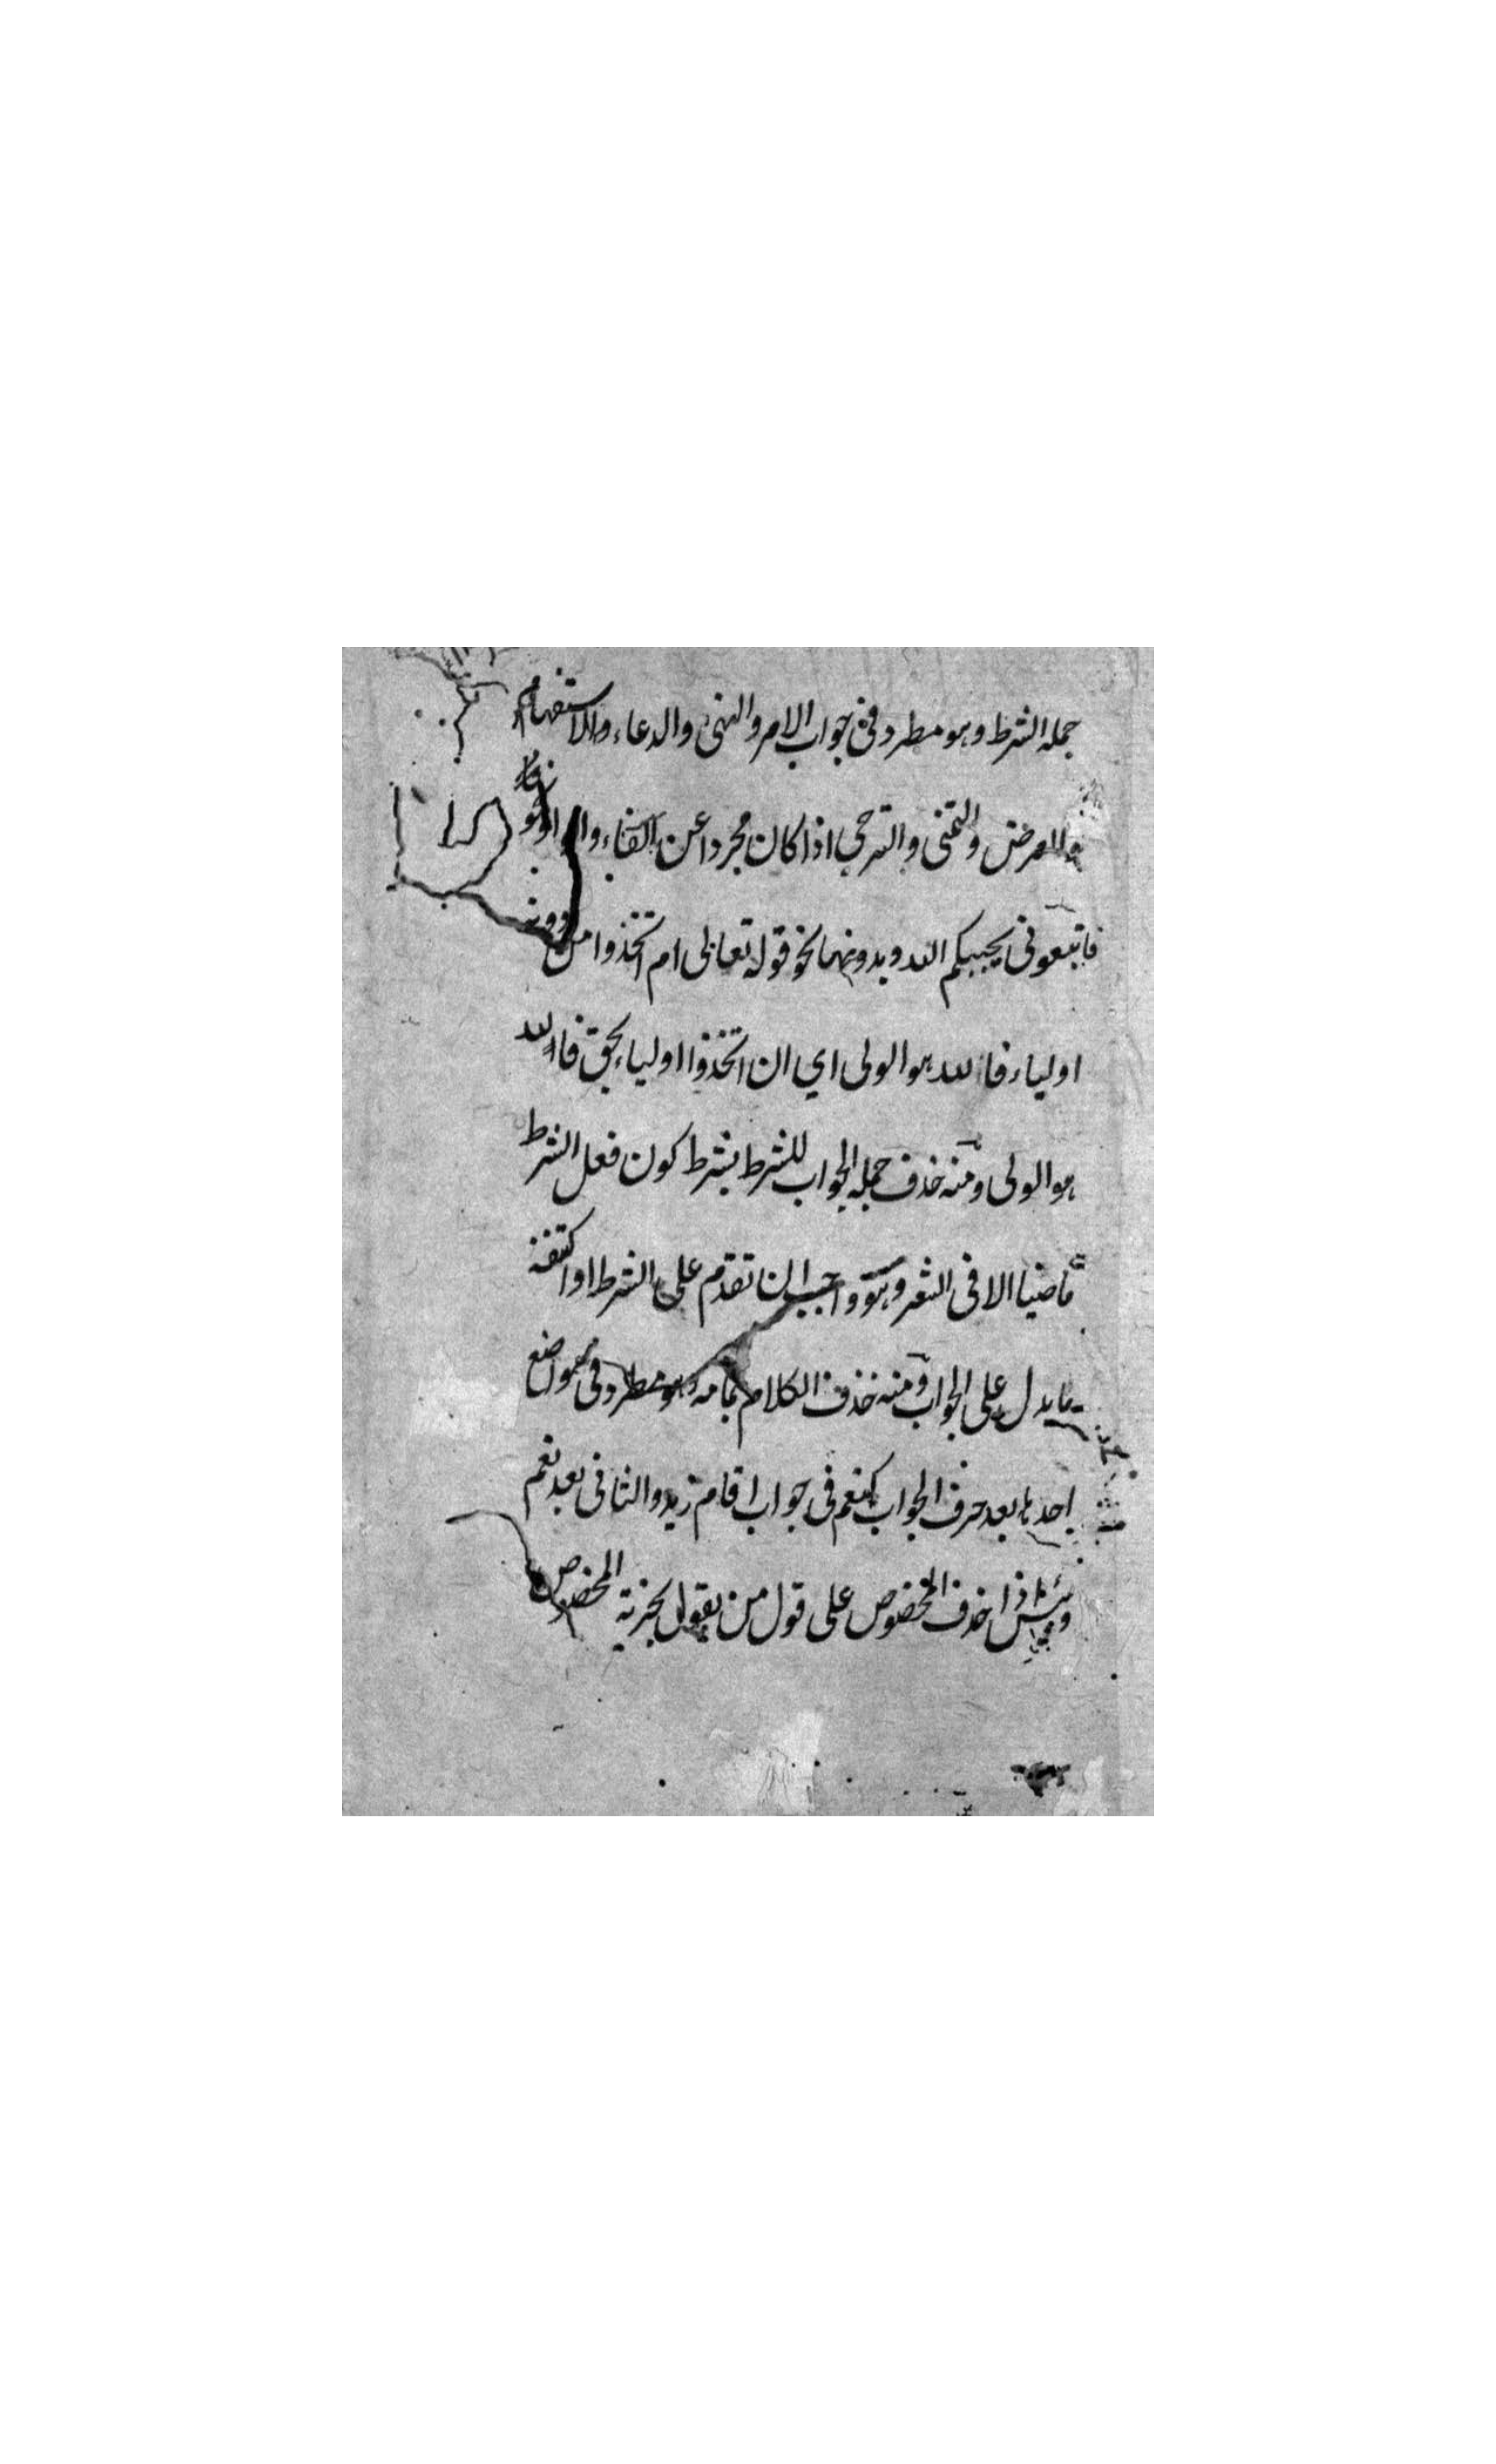 جمله الشرط وهو مطرد فى جواب الامر والنهى والدعاء والاستفهام
والعرض والتمنى والترجي اذا كان مجردا عن الفاء والواو نحو
فاتبعونى يحببكم الله وبدونهما نحو قوله تعالى ام اتخذوا من دونه
اولياء فالله هو الولى اي ان اتخذوا اولياء بحق فالله
هو الولى ومنه حذف جمله الجواب للشرط بشرط كون فعل الشرط
ماضيا الا فى الشعر وهو واجب ان تقدم على الشرط او اكتنفه
ما يدل على الجواب ومنه حذف الكلام بتمامه وهو مطرد فى مواضع
احدها بعد حرف الجواب كنعم فى جواب اقام زيد والثانى بعد نعم
وبئس اذا حذف المخصوص على قول من يقول بخبرية المخصوص